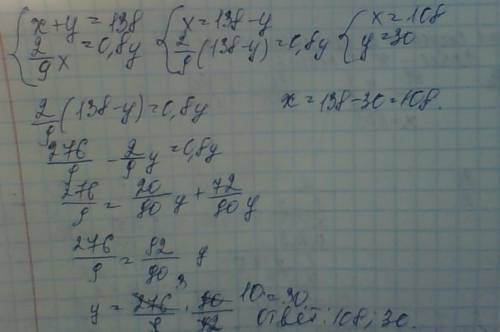 {x+y=138 {x=138-y {x=108
2/9 x=0,8y 2/9(138-y)=0,8y y=30
2/9(138-y)=0,8y x=138-30=108.
276/9 - 2/9 y=0,8y
276/9 = 20/90 y + 72/90 y
276/9 = 92/90 y
y = 276/9 · 90/92 3 10=30
ответ: 108; 30.